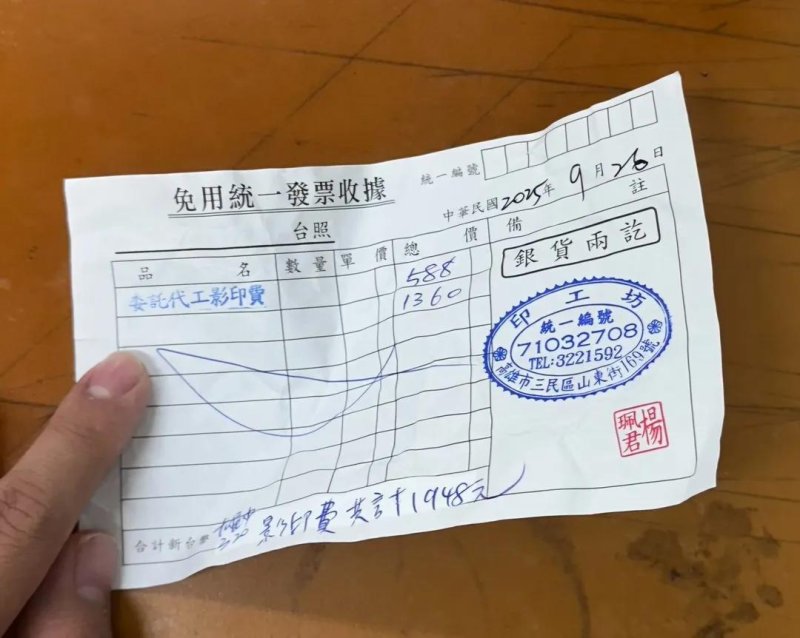 統一編號
免用統一發票收據
中華民國2025年9月26日
台照
品名 數量 單價 總價 備註
委託代工影印費 588
1360
銀貨兩訖
印工坊
統一編號
71032708
TEL:3221592
高雄市三民區山東街169號
楊珮君
合計新台幣
影印費 共計1948元